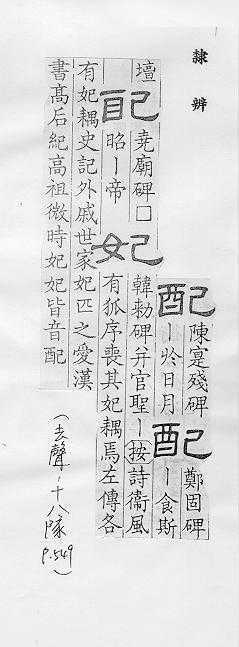 隸辨
配 陳寔殘碑
丨於日月
配 鄭固碑
丨食斯
壇
配 堯廟碑□
昭丨帝
妃 韓勑碑并官聖丨按詩衛風
有狐序喪其妃耦焉左傳各
有妃耦史記外戚世家妃匹之愛漢
書髙后紀高祖微時妃妃皆音配
(去聲-十八隊 p.549)